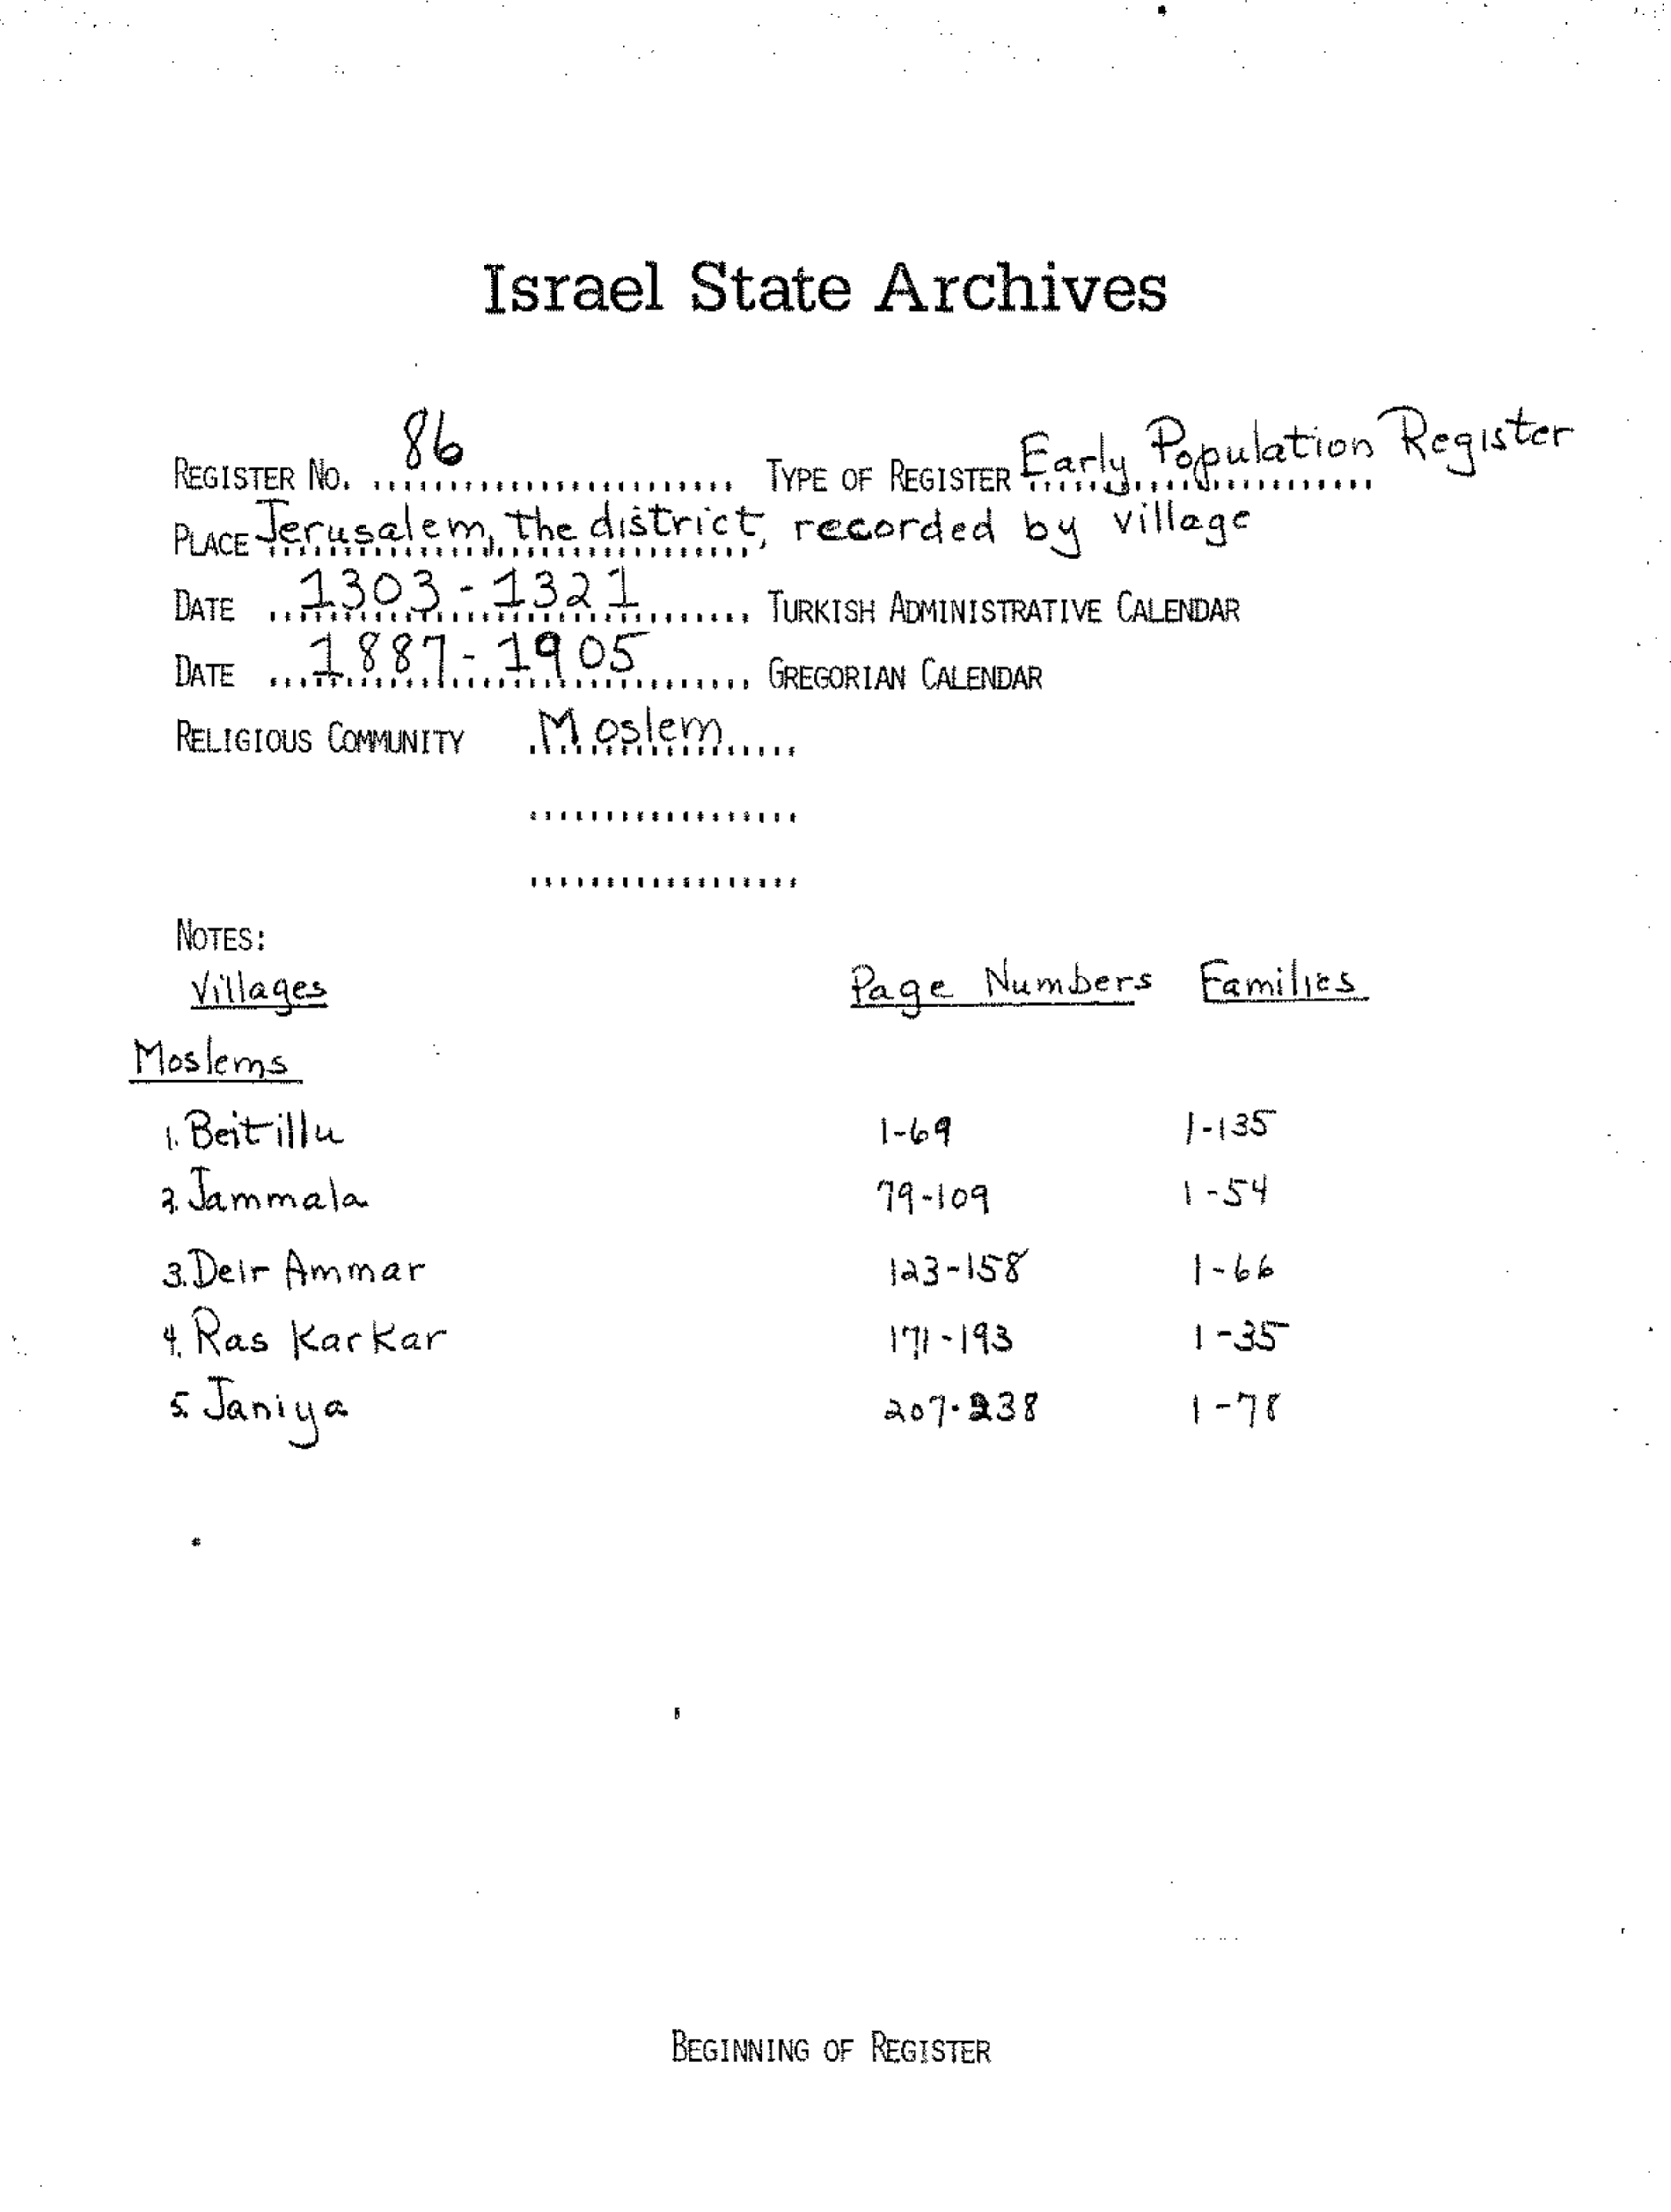 Israel State Archives
REGISTER No. 86 TYPE OF REGISTER Early Population Register
PLACE Jerusalem, the district, recorded by village
DATE 1303-1321 TURKISH ADMINISTRATIVE CALENDAR
DATE 1887-1905 GREGORIAN CALENDAR
RELIGIOUS COMMUNITY Moslem
NOTES:
Villages Page Numbers Families
Moslems
1. Beitillu 1-69 1-135
2. Jammala 79-109 1-54
3. Deir Ammar 123-158 1-66
4. Ras Karkar 171-193 1-35
5. Janiya 207-238 1-78
BEGINNING OF REGISTER